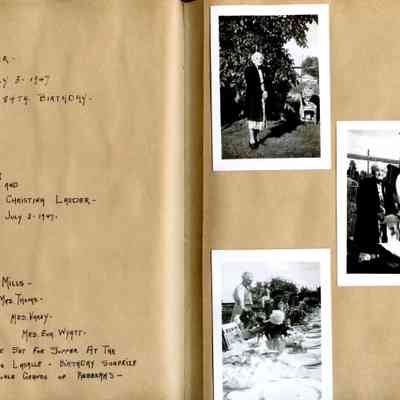 3 - 1947
84TH BIRTHDAY -
AND
CHRISTINA LAUDER -
JULY 3 - 1947.
MILLS -
MRS. THOMS -
MRS.
MRS. EVA WYATT -
SET FOR SUPPER AT THE
LASALLE - BIRTHDAY SURPRISE
GRAVES OF REBEKAHS -